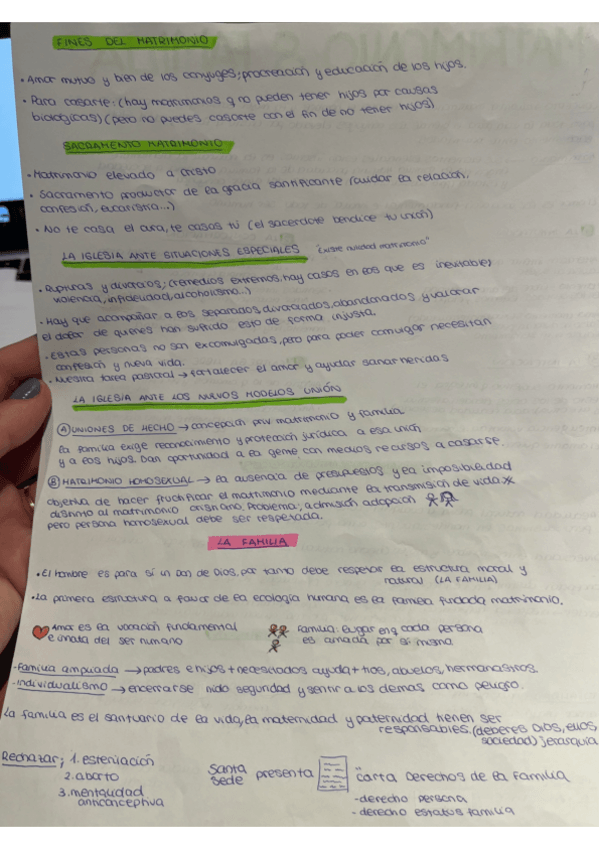 FINES DEL MATRIMONIO
• Amor mutuo y bien de los conyuges; procreación y educación de los hijos.
• Para casarte: (hay matrimonios q no pueden tener hijos por causas
biologicas) (pero no puedes casarte con el fin de no tener hijos)
SACRAMENTO MATRIMONIO
• Matrimonio elevado a cristo
• Sacramento productor de la gracia santificante (cuidar la relación,
confesión, eucaristia...)
• No te casa el cura, te casas tú (el sacerdote bendice tu unión)
LA IGLESIA ANTE SITUACIONES ESPECIALES "existe nulidad matrimonio"
• Rupturas y divorcios; (remedios extremos, hay casos en los que es inevitable;
violencia, infidelidad, alcoholismo...)
• Hay que acompañar a los separados, divorciados, abandonados y valorar
el dolor de quienes han sufrido esto de forma injusta.
• Estas personas no son excomulgadas, pero para poder comulgar necesitan
confesión y nueva vida.
• Nuestra tarea pastoral → fortalecer el amor y ayudar sanar heridas
LA IGLESIA ANTE LOS NUEVOS MODELOS UNIÓN
A UNIONES DE HECHO → concepción priv matrimonio y familia
La familia exige reconocimiento y protección jurídica a esa unión
y a los hijos. Dan oportunidad a la gente con medios recursos a casarse.
B MATRIMONIO HOMOSEXUAL → la ausencia de presupuestos y la imposibilidad
objetiva de hacer fructificar el matrimonio mediante la transmisión de vida
distinto al matrimonio originario. Problema; admisión adopción
pero persona homosexual debe ser respetada.
LA FAMILIA
• El hombre es para sí un Don de Dios, por tanto debe respetar la estructura moral y
natural (LA FAMILIA)
• La primera estructura a favor de la ecología humana es la familia fundada matrimonio.
Amor es la vocación fundamental
e innata del ser humano
Familia: lugar en q cada persona
es amada por sí misma
-Familia ampliada → padres e hijos + necesitados ayuda + tios, abuelos, hermanastros.
-Individualismo → encerrarse nido seguridad y sentir a los demas como peligro.
La familia es el santuario de la vida, la maternidad y paternidad tienen ser
responsables. (deberes Dios, ellos,
sociedad) jerarquia
Rechazar; 1. esterilación
2. aborto
3. mentalidad
anticonceptiva
Santa
Sede presenta "Carta Derechos de la Familia
-derecho persona
-derecho estatus familia